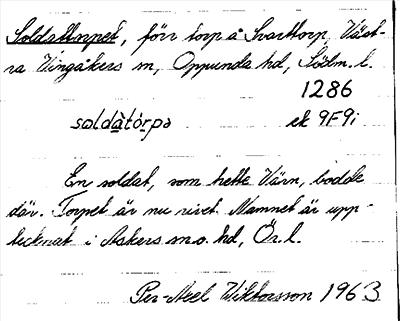 Soldattorpet, förr torp å Svarttorp, Väst-
ra Vingåkers sn, Oppunda hd, Södm. l.
1286
soldàtòrpə ek 9F9i
En soldat, som hette Värn, bodde
där. Torpet är nu rivet. Namnet är upp-
tecknat i Askers sn o. hd, Ör. l.
Per-Axel Wiktorsson 1963